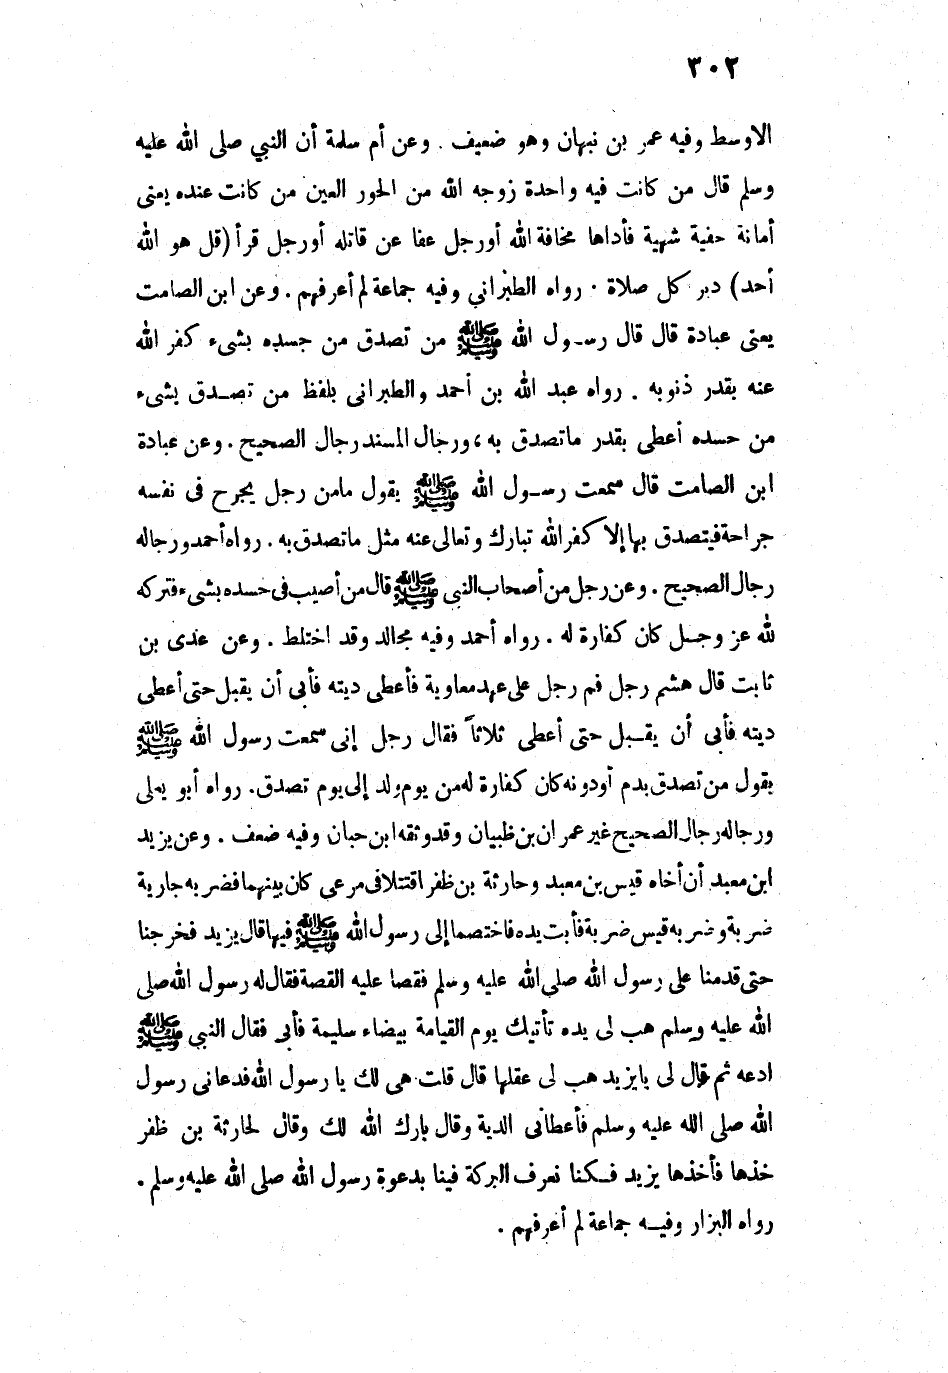 ٣٠٢
الاوسط وفيه عمر بن نبهان وهو ضعيف . وعن أم سلمة أن النبي صلى الله عليه
وسلم قال من كانت فيه واحدة زوجه الله من الحور العين من كانت عنده يعنى
أمانة خفية شهية فأداها مخافة الله أورجل عفا عن قاتله أورجل قرأ (قل هو الله
أحد) دبر كل صلاة . رواه الطبراني وفيه جماعة لم أعرفهم . وعن ابن الصامت
يعنى عبادة قال قال رسول الله ﷺ من تصدق من جسده بشىء كفر الله
عنه بقدر ذنوبه . رواه عبد الله بن أحمد والطبرانى بلفظ من تصدق بشىء
من جسده أعطى بقدر ماتصدق به ، ورجال المسند رجال الصحيح . وعن عبادة
ابن الصامت قال سمعت رسول الله ﷺ يقول مامن رجل يجرح فى نفسه
جراحة فيتصدق بها إلا كفر الله تبارك وتعالى عنه مثل ماتصدق به . رواه أحمد ورجاله
رجال الصحيح . وعن رجل من أصحاب النبى ﷺ قال من أصيب فى جسده بشىء فتركه
لله عز وجل كان كفارة له . رواه أحمد وفيه مجالد وقد اختلط . وعن عدى بن
ثابت قال هشم رجل فم رجل على عهد معاوية فأعطى ديته فأبى أن يقبل حتى أعطى
ديته فأبى أن يقبل حتى أعطى ثلاثاً فقال رجل إنى سمعت رسول الله ﷺ
يقول من تصدق بدم أودونه كان كفارة له من يوم ولد إلى يوم تصدق . رواه أبو يعلى
ورجاله رجال الصحيح غير عمران بن ظبيان وقد وثقه ابن حبان وفيه ضعف . وعن يزيد
ابن معبد أن أخاه قيس بن معبد وحارثة بن ظفر اقتتلا فى مرعى كان بينهما فضربه جارية
ضربة وضربه قيس ضربة فأبت يده فاختصما إلى رسول الله ﷺ فيها قال يزيد فخرجنا
حتى قدمنا على رسول الله صلى الله عليه وسلم فقصا عليه القصة فقال له رسول الله صلى
الله عليه وسلم هب لى يده تأتيك يوم القيامة بيضاء سليمة فأبى فقال النبى ﷺ
ادعه ثم قال لى يايزيد هب لى عقلها قال قلت هى لك يا رسول الله فدعانى رسول
الله صلى الله عليه وسلم فأعطانى الدية وقال بارك الله لك وقال لحارثة بن ظفر
خذها فأخذها يزيد فكنا نعرف البركة فينا بدعوة رسول الله صلى الله عليه وسلم .
رواه البزار وفيه جماعة لم أعرفهم .